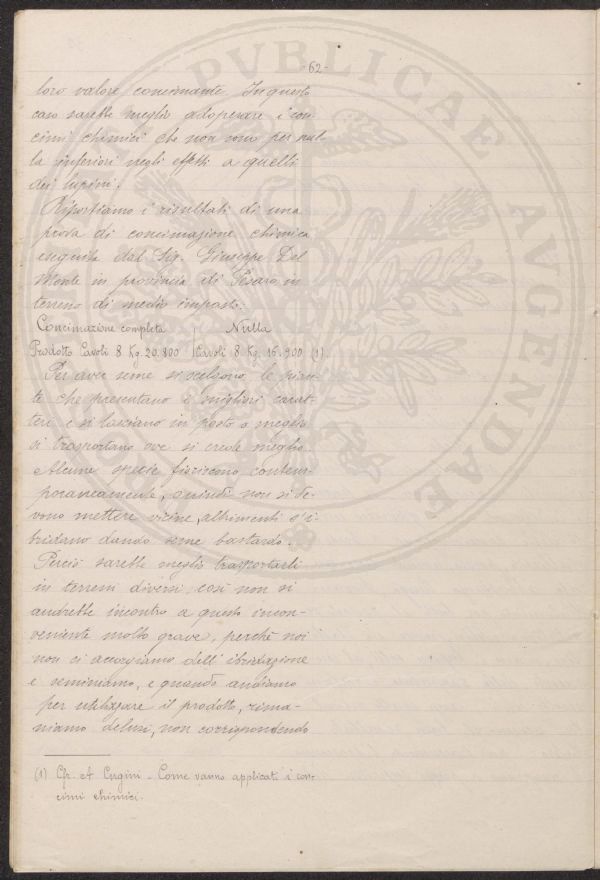 -62-
loro valore concimante. In questo
caso sarebbe meglio adoperare i con-
cimi chimici che non sono per nul-
la inferiori negli effetti a quelli
dei lupini.
Riportiamo i risultati di una
prova di concimazione chimica
eseguita dal Sig. Giuseppe Del
Monte in provincia di Pesaro, in
terreno di medio impasto.
Concimazione completa | Nulla
Prodotto Cavoli 8 Kg. 20.800 | Cavoli 8 Kg. 16.900 (1).
Per aver seme si scelgono le pian-
te che presentano i migliori carat-
teri e si lasciano in posto o meglio
si trasportano ove si crede meglio.
Alcune specie fioriscono contem-
poraneamente, quindi non si de-
vono mettere vicine, altrimenti s'i-
bridano dando seme bastardo.
Perciò sarebbe meglio trasportarli
in terreni diversi, così non si
andrebbe incontro a questo incon-
veniente molto grave, perché noi
non ci accorgiamo dell'ibridazione
e seminiamo, e quando andiamo
per utilizzare il prodotto, rima-
niamo delusi, non corrispondendo
(1) Cfr. A. Cugini - Come vanno applicati i con-
cimi chimici.
PVBLICAE AVGENDAE